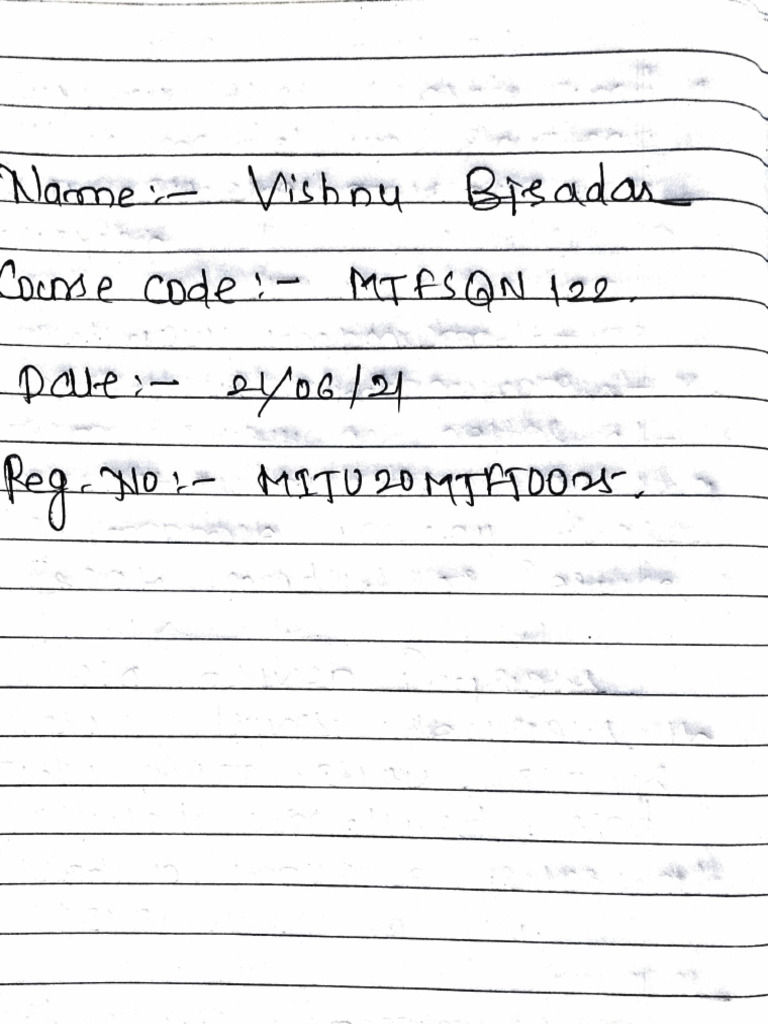 Name:- Vishnu Biradar
Course code:- MTFSQN 122.
Date:- 21/06/21
Reg. No:- MITU20MTFT0025.